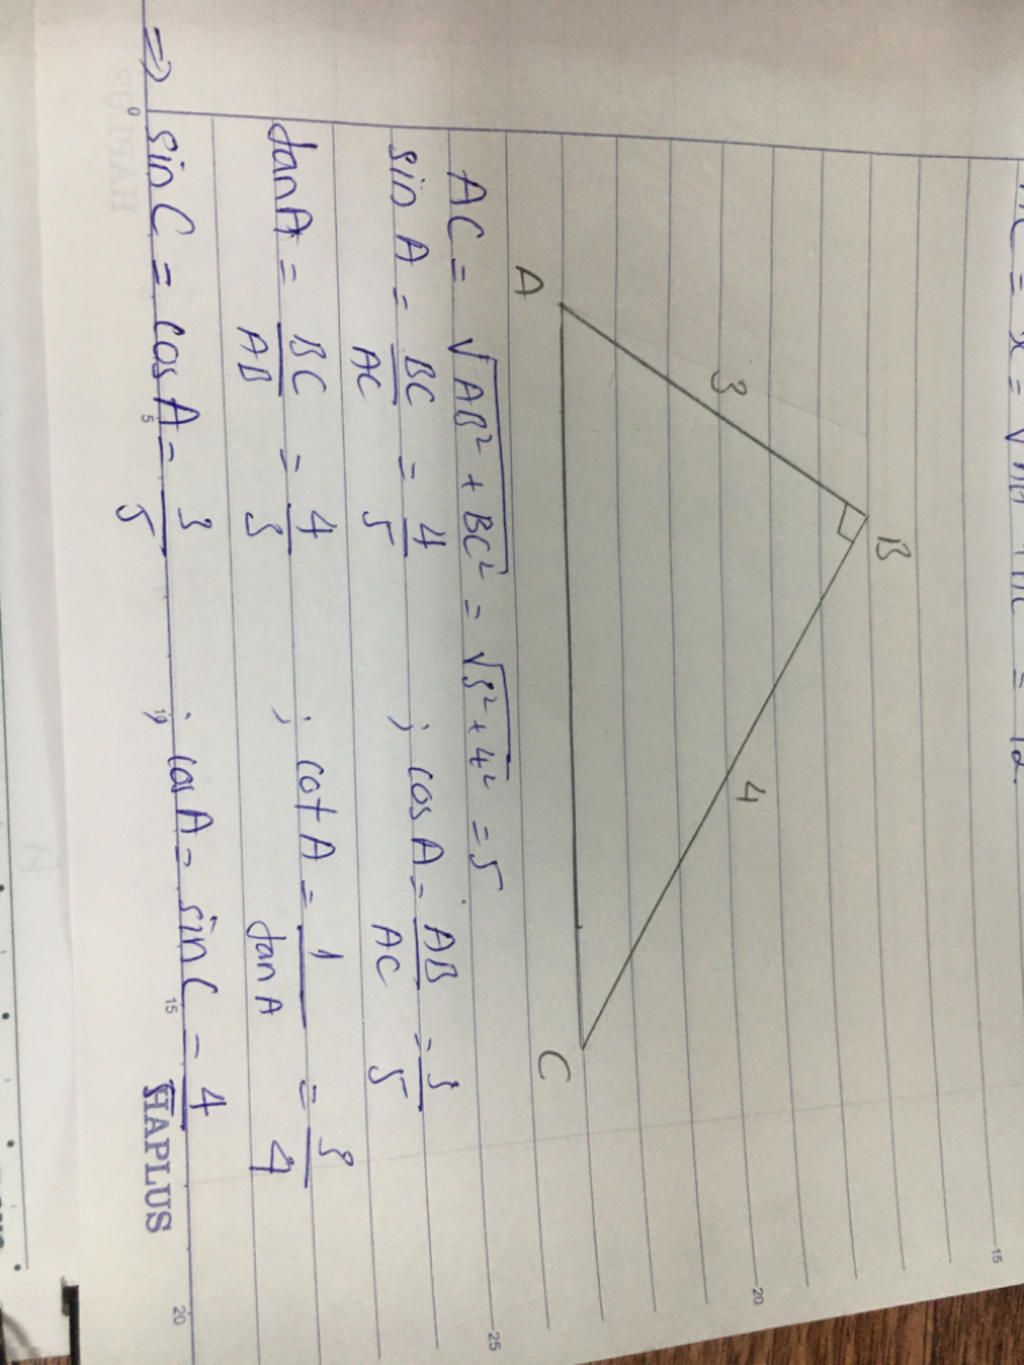 B
3
4
A
C
AC = √AB² + BC² = √3² + 4² = 5
sin A = BC/AC = 4/5 ; cos A = AB/AC = 3/5
tan A = BC/AB = 4/3 ; cot A = 1/tan A = 3/4
=> sin C = cos A = 3/5 ; cos A = sin C = 4/5
0 5 10 15 20
15
20
25
HAPLUS